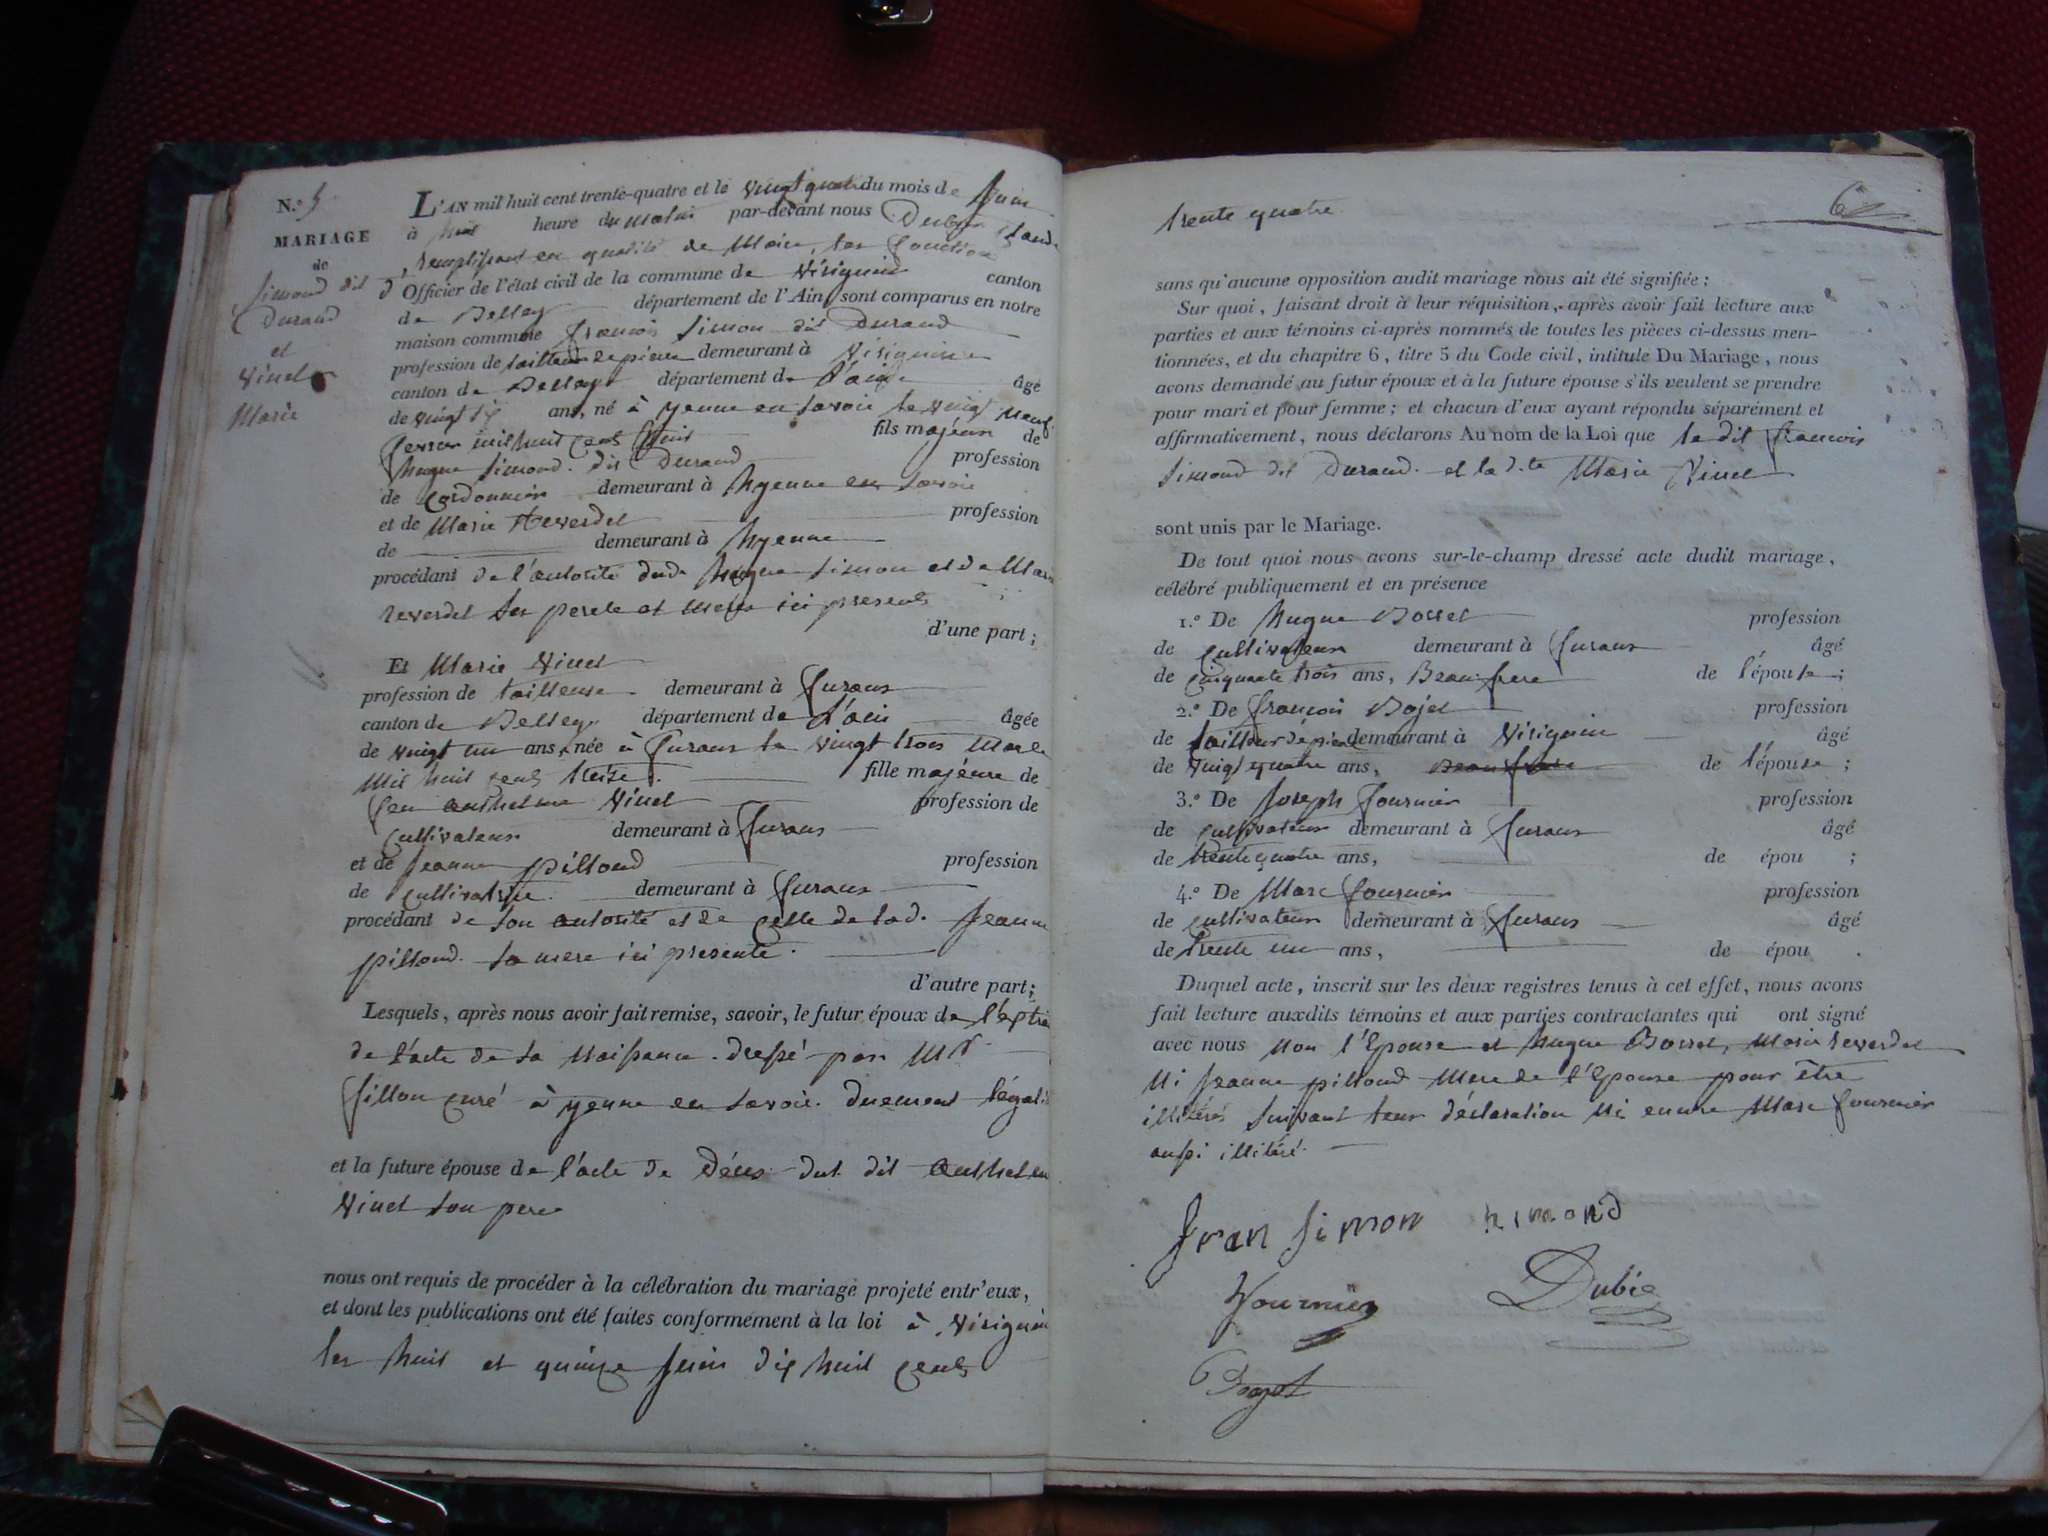 N.o 5
MARIAGE
de
Simond dit
Durand
et
Vinet
Marie
L'AN mil huit cent trente-quatre et le vingt quatre du mois de Juin
à huit heure du Matin par-devant nous Dubie
remplissant en qualité de Maire, les fonctions
d'Officier de l'état civil de la commune de Virignin canton
de Belley département de l'Ain, sont comparus en notre
maison commune françois Simon dit Durand
profession de tailleur de pierre demeurant à Virignin
canton de Belley département de L'ain âgé
de vingt six ans, né à yenne en Savoie le vingt neuf
fevrier mil huit cent huit fils majeur de
hugue Simond dit Durand profession
de Cordonnier demeurant à hyenne en Savoie
et de Marie Reverdet profession
de demeurant à hyenne
procédant de l'autorité dud. hugue Simon et de Marie
reverdet ses pere et mere ici presents
d'une part ;
Et Marie Vinet
profession de tailleuse demeurant à furans
canton de Belley département de L'ain âgée
de vingt un ans, née à furans le vingt trois Mars
Mil huit cent treize. fille majeure de
feu Anthelme Vinet profession de
Cultivateur demeurant à furans
et de Jeanne pilloud profession
de Cultivatrice. demeurant à furans
procédant de son autorité et de Celle de lad. Jeanne
pilloud. sa mere ici presente.
d'autre part ;
Lesquels, après nous avoir fait remise, savoir, le futur époux de l'extrait
de l'acte de sa Naissance. dressé par Mr
fillon curé à yenne en Savoie. duement légalisé
et la future épouse de l'acte de Déces dud. dit Anthelme
Vinet son pere
nous ont requis de procéder à la célébration du mariage projeté entr'eux,
et dont les publications ont été faites conformément à la loi à Virignin
les huit et quinze Juin dix huit cent
trente quatre
6
sans qu'aucune opposition audit mariage nous ait été signifiée ;
Sur quoi, faisant droit à leur réquisition, après avoir fait lecture aux
parties et aux témoins ci-après nommés de toutes les pièces ci-dessus men-
tionnées, et du chapitre 6, titre 5 du Code civil, intitule Du Mariage, nous
avons demandé au futur époux et à la future épouse s'ils veulent se prendre
pour mari et pour femme ; et chacun d'eux ayant répondu séparément et
affirmativement, nous déclarons Au nom de la Loi que le dit françois
Simond dit Durand. et la d.te Marie Vinet
sont unis par le Mariage.
De tout quoi nous avons sur-le-champ dressé acte dudit mariage,
célébré publiquement et en présence
1.o De hugue Bosset profession
de Cultivateur demeurant à furans âgé
de Cinquante trois ans, Beau frere de l'épouse ;
2.o De françois Bojet profession
de tailleur de pierre demeurant à Virignin âgé
de vingt quatre ans, Beau frere de l'épouse ;
3.o De Joseph fournier profession
de Cultivateur demeurant à furans âgé
de trente quatre ans, de épou ;
4.o De Marc fournier profession
de Cultivateur demeurant à furans âgé
de trente un ans, de épou .
Duquel acte, inscrit sur les deux registres tenus à cet effet, nous avons
fait lecture auxdits témoins et aux parties contractantes qui ont signé
avec nous Non l'Epouse et hugue Bosset, Marie reverdet
Ni Jeanne pilloud Mere de l'Epouse pour être
illitérés suivant leur déclaration Ni encore Marc fournier
aussi illitéré.
fran Simon Simond
fournier Dubie
Bojet